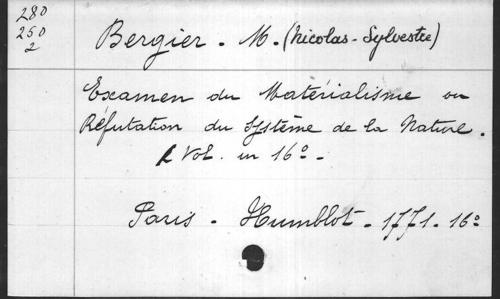 280
250
2
Bergier. M. (Nicolas-Sylvestre)
Examen du Matérialisme ou
Réfutation du Système de la Nature.
Vol. in 16º.
Paris. Humblot. 1771. 16º